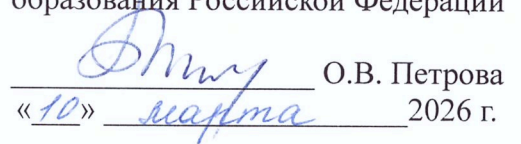 образования Российской Федерации
О.В. Петрова
«10» марта 2026 г.